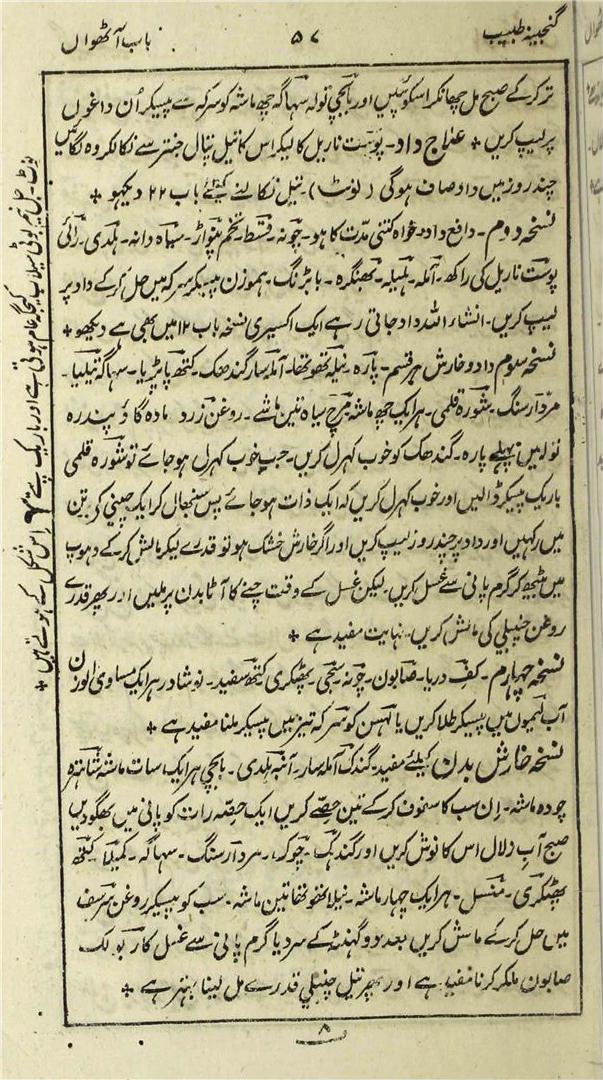 گنجینہ طبیب
۵۷
باب آٹھواں
ترکرکے صبح مل چھانکر اسکو پئیں اور بابچی تولہ سہاگہ چھ ماشہ کو سرکہ سے پیسکر اُن داغوں
پر لیپ کریں + علاج داد۔ پوست ناریل کا لیکر اس کا تیل پتال جنتر سے نکالکر وہ لگائیں
چند روز میں داد صاف ہوگی (نوٹ) تیل نکالنے کیلئے باب ۲۲ دیکہو +
نسخہ دوم۔ دافع داد خواہ کتنی مدت کا ہو۔ چونہ۔ قسط۔ تخم پنواڑ۔ سیاہ دانہ۔ ہلدی۔ رائی
پوست ناریل کی راکھ۔ آملہ۔ ہلیلہ۔ بھنگرہ۔ بابڑنگ۔ ہموزن پیسکر سرکہ میں حل کرکے داد پر
لیپ کریں۔ انشاء اللہ داد جاتی رہے ایک اکسیری نسخہ باب ۱۲ میں بھی ہے دیکھو +
نسخہ سوم داد و خارش ہر قسم۔ پارہ۔ نیلہ تھوتھا۔ آملہ سار گندھک۔ کتھ پاپڑیا۔ سہاگہ تیلیا۔
مردارسنگ۔ شورہ قلمی۔ ہر ایک چھ ماشہ مرچ سیاہ تین ماشے۔ روغن زرد مادہ گاؤ پندرہ
تولہ میں پہلے پارہ۔ گندھک کو خوب کہرل کریں۔ جب خوب کہرل ہوجائے تو شورہ قلمی
باریک پیسکر ڈالیں اور خوب کہرل کریں کہ ایک ذات ہوجائے پس سنبھال کر ایک چینی کے برتن
میں رکہیں اور داد پر چند روز لیپ کریں اور اگر خارش خشک ہو تو قدرے لیکر مالش کرکے دہوپ
میں بیٹھکر گرم پانی سے غسل کریں۔ لیکن غسل کے وقت چنے کا آٹا بدن پر ملیں اور پھر قدرے
روغن چنبیلی کی مالش کریں۔ نہایت مفید ہے +
نسخہ چہارم۔ کف دریا۔ صابون۔ چونہ۔ سجی۔ پھٹکری کتھ سفید۔ نوشادر ہر ایک مساوی الوزن
آب لیموں میں پیسکر طلا کریں یا لہسن کو سرکہ تیز میں پیسکر ملنا مفید ہے +
نسخہ خارش بدن کیلئے مفید۔ گندک آملہ سار۔ آنبہ ہلدی۔ بابچی ہر ایک سات ماشہ شاہترہ
چودہ ماشہ۔ اِن سب کا سفوف کرکے تین حصے کریں ایک حصہ رات کو پانی میں بھگو دیں
صبح آب زلال اس کا نوش کریں اور گندہک۔ چوک۔ مردارسنگ۔ سہاگہ۔ کمیلا کتھ
پھٹکری۔ منسل۔ ہر ایک چہار ماشہ۔ نیلا تھوتھا تین ماشہ۔ سب کو پیسکر روغن سرسف
میں حل کرکے مالش کریں بعد دو گھنٹہ کے سرد یا گرم پانی سے غسل
صابون ملکر کرنا مفید ہے اور پھر تیل چنبیلی قدرے مل لینا بہتر ہے +
۸
نوٹ۔ عام ہوتی ہے اور باریک پتے اس شکل کے ہوتے ہیں +